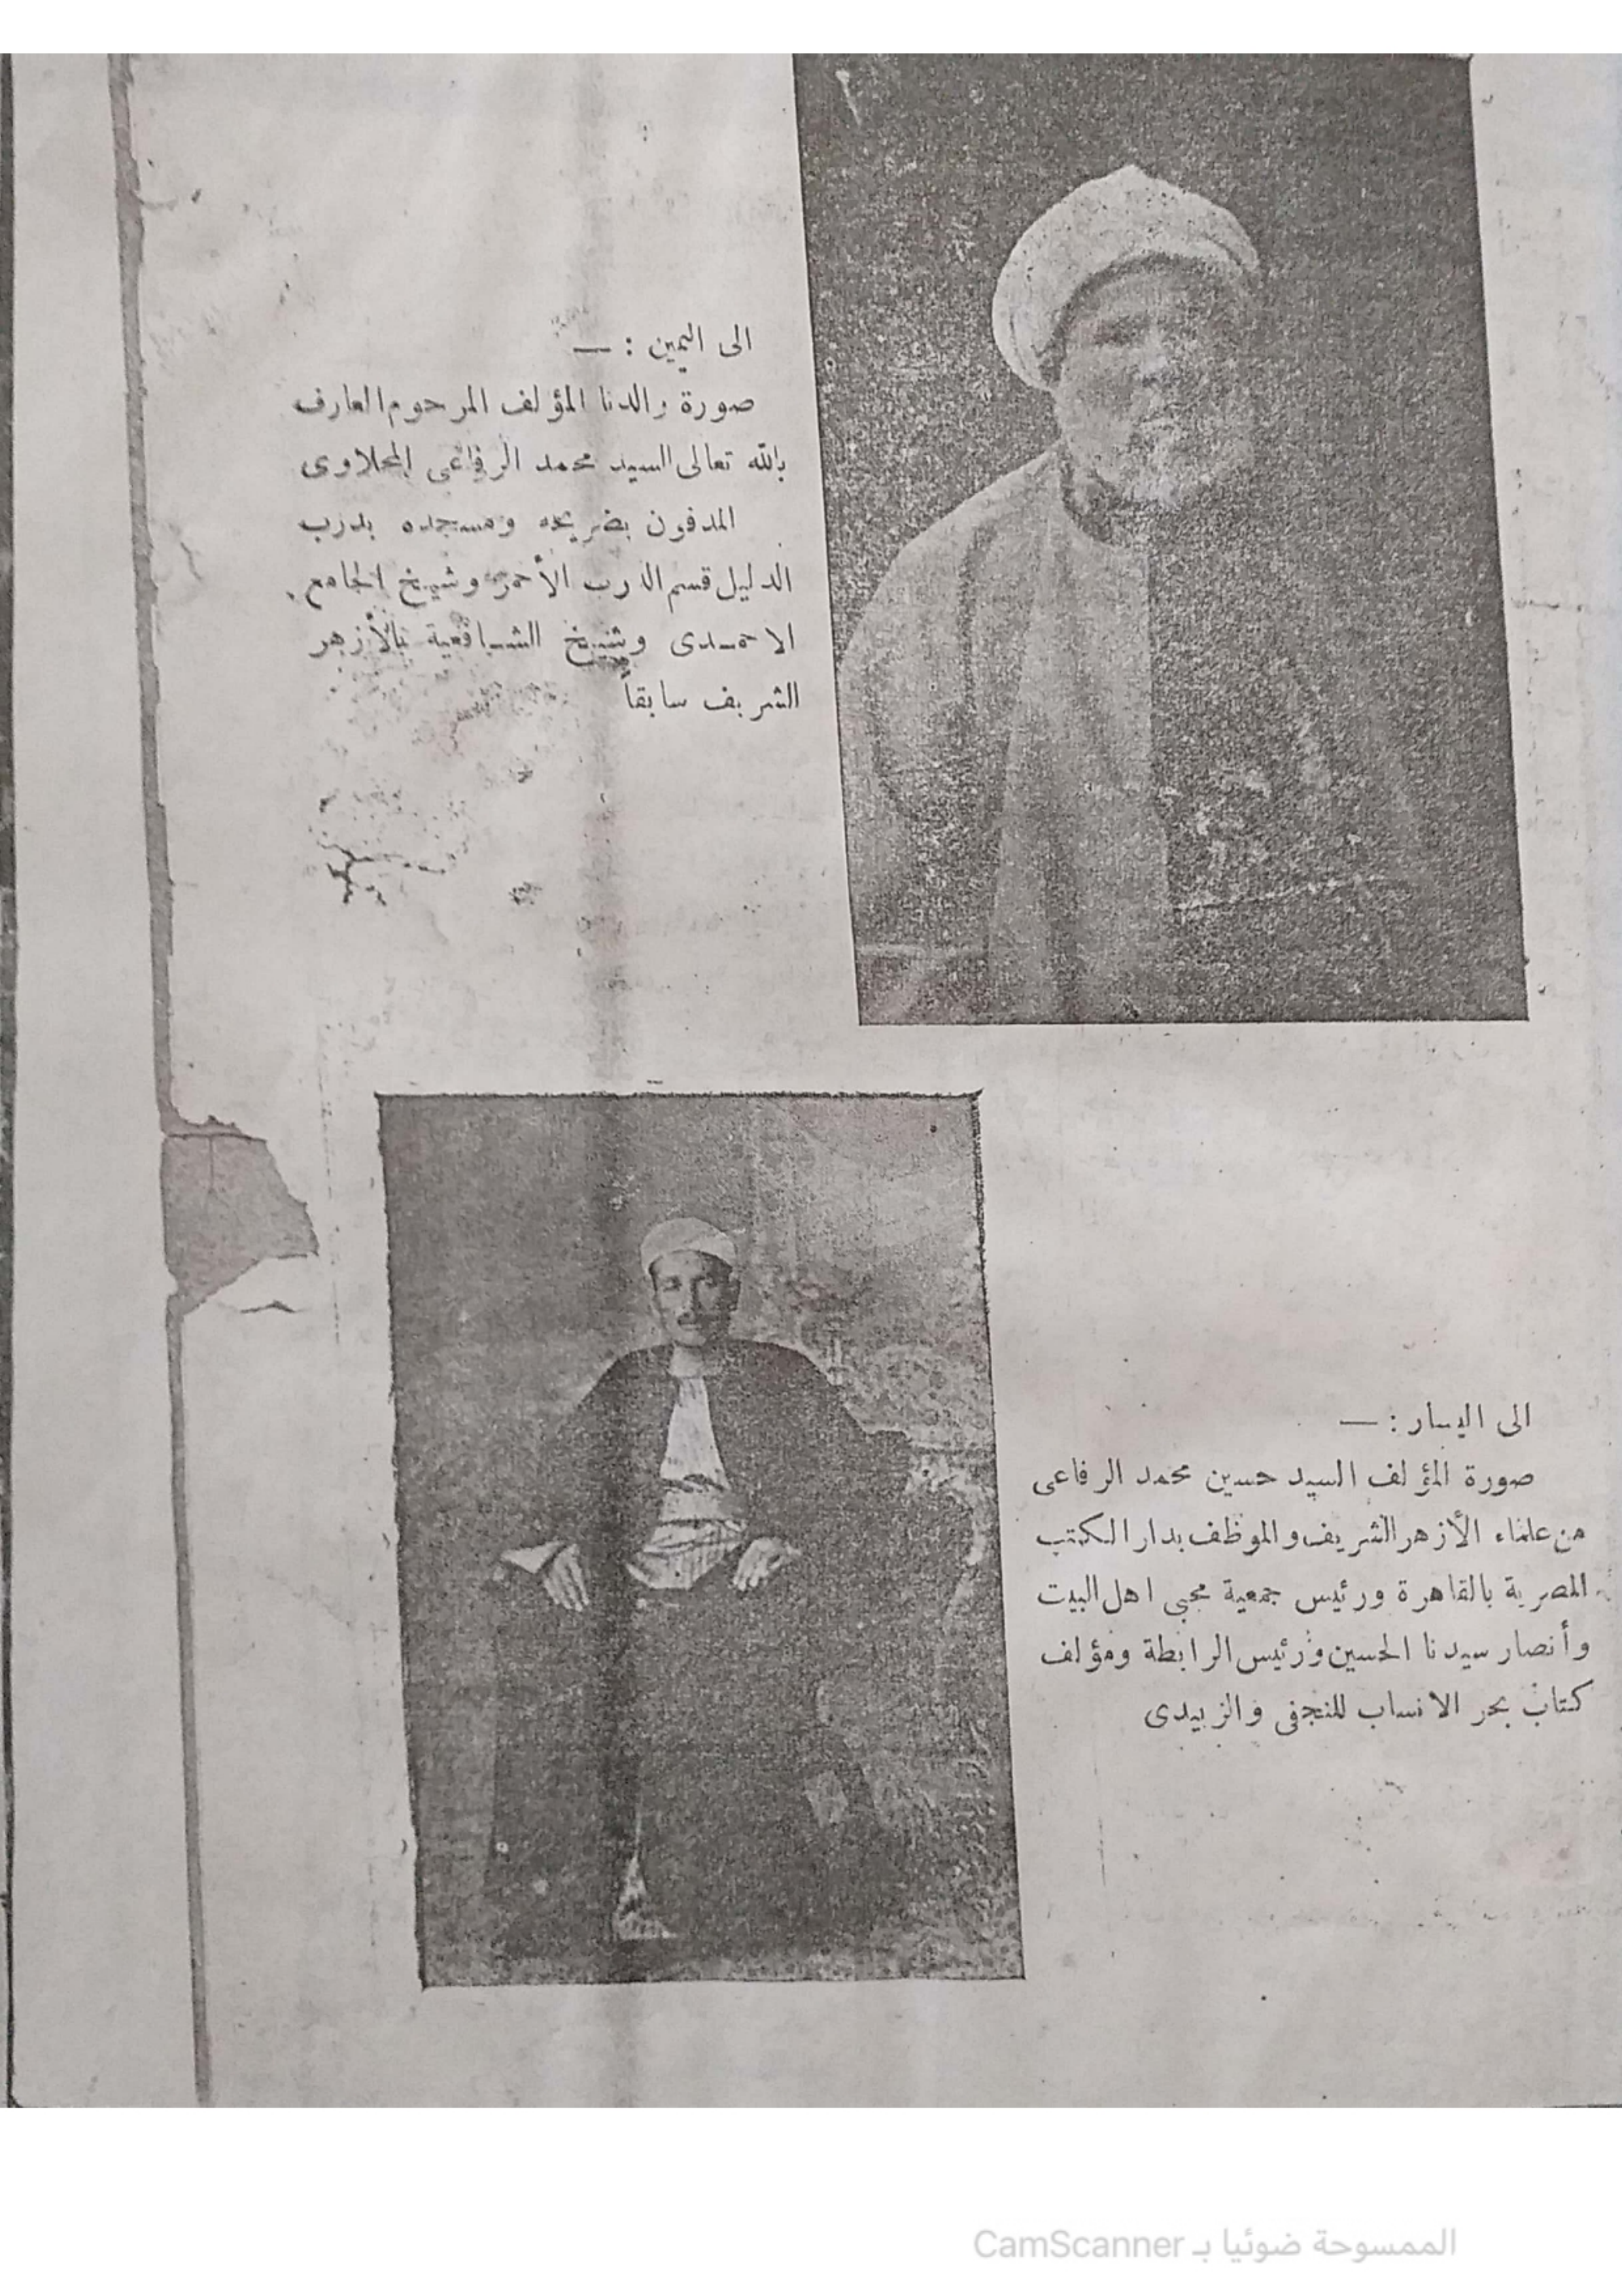 الى اليمين : —
صورة والدنا المؤلف المرحوم العارف
بالله تعالى السيد محمد الرفاعى المحلاوى
المدفون بضريحه ومسجده بدرب
الدليل قسم الدرب الأحمر وشيخ الجامع
الاحمدى وشيخ الشافعية بالأزهر
الشريف سابقاً
الى اليسار : —
صورة المؤلف السيد حسين محمد الرفاعى
من علماء الأزهر الشريف والموظف بدار الكتب
المصرية بالقاهرة ورئيس جمعية محبى اهل البيت
وأنصار سيدنا الحسين ورئيس الرابطة ومؤلف
كتاب بحر الانساب للنجفى والزبيدى
الممسوحة ضوئيا بـ CamScanner